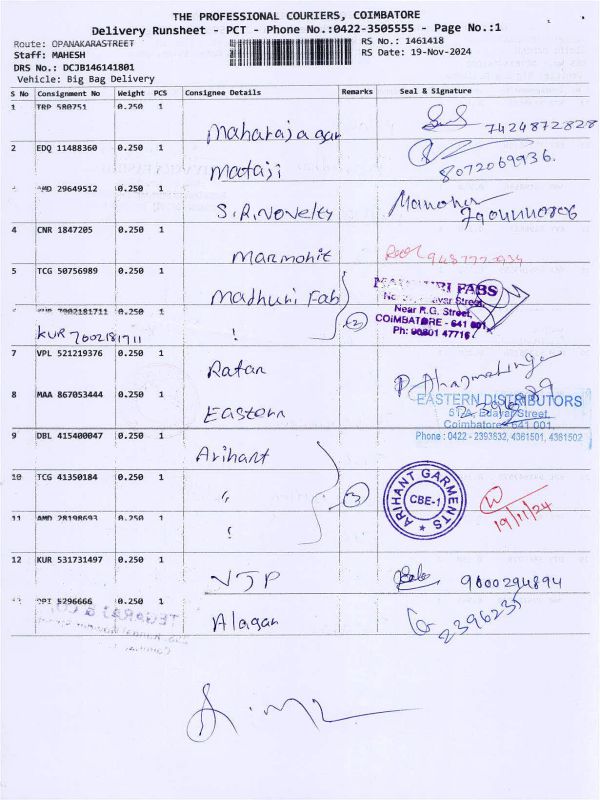 THE PROFESSIONAL COURIERS, COIMBATORE
Delivery Runsheet - PCT - Phone No.:0422-3505555 - Page No.:1
Route: OPANAKARASTREET
RS No.: 1461418
Staff: MAHESH
RS Date: 19-Nov-2024
DRS No.: DCJB146141801
Vehicle: Big Bag Delivery
S No Consignment No Weight PCS Consignee Details Remarks Seal & Signature
1 TRP 580751 0.250 1
Maharajagar 7424872828
2 EDQ 11488360 0.250 1
Mataji 8072069936.
AMD 29649512 0.250 1
S.R.Novelty Manohar
4 CNR 1847205 0.250 1
Marmohit
5 TCG 50756989 0.250 1
Madhuri Fab
MADHURI FABS
Near R.G. Street,
COIMBATORE - 641 001
Ph: 90801 47716
(2)
KUR 7002181711 0.250 1
KUR 7002181711 "
7 VPL 521219376 0.250 1
Ratan
8 MAA 867053444 0.250 1
Eastern
EASTERN DISTRIBUTORS
Edayar Street,
Coimbatore - 641 001.
Phone : 0422 - 2393632, 4361501, 4361502
9 DBL 415400047 0.250 1
Arihant
10 TCG 41350184 0.250 1
"
(3)
ARIHANT GARMENTS
CBE-1
19/11/24
11 AMD 28198693 0.250 1
"
12 KUR 531731497 0.250 1
NJP 9000294894
13 OPI 5296666 0.250 1
Alagan 2396235